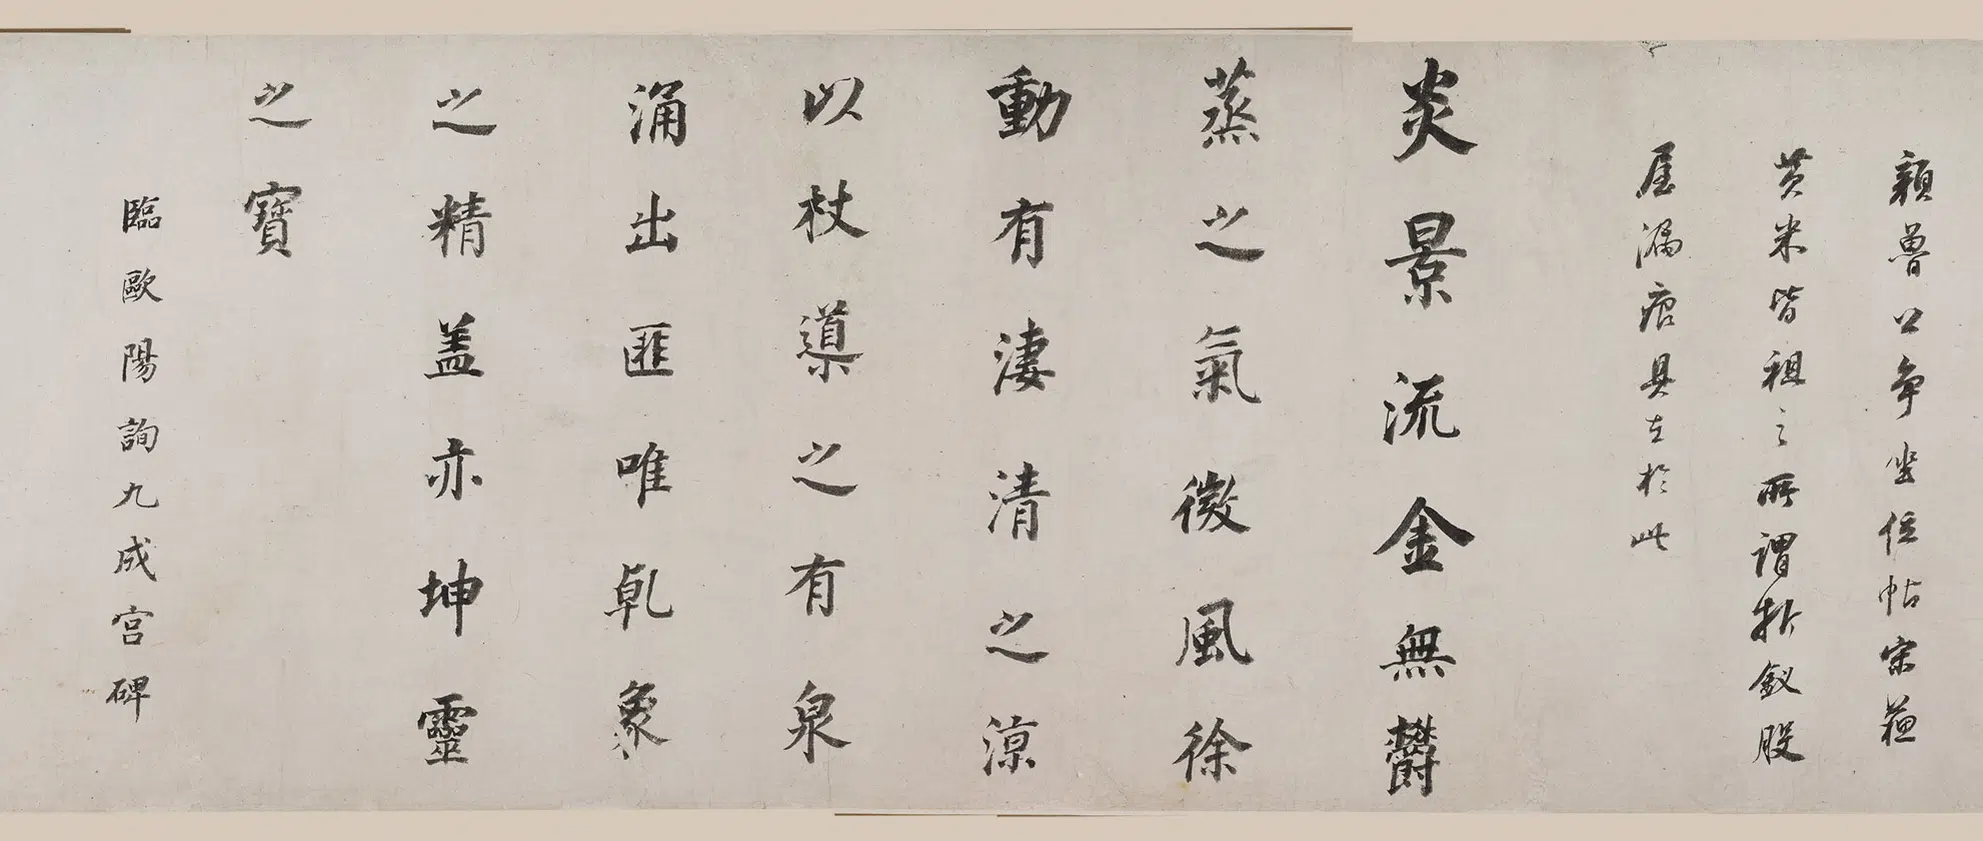 顏魯公爭坐位帖宋蘇
黃米皆祖之所謂折釵股
屋漏痕具在於此
炎景流金無鬱
蒸之氣微風徐
動有淒清之涼
以杖導之有泉
涌出匪唯乹象
之精盖亦坤靈
之寶
臨歐陽詢九成宮碑